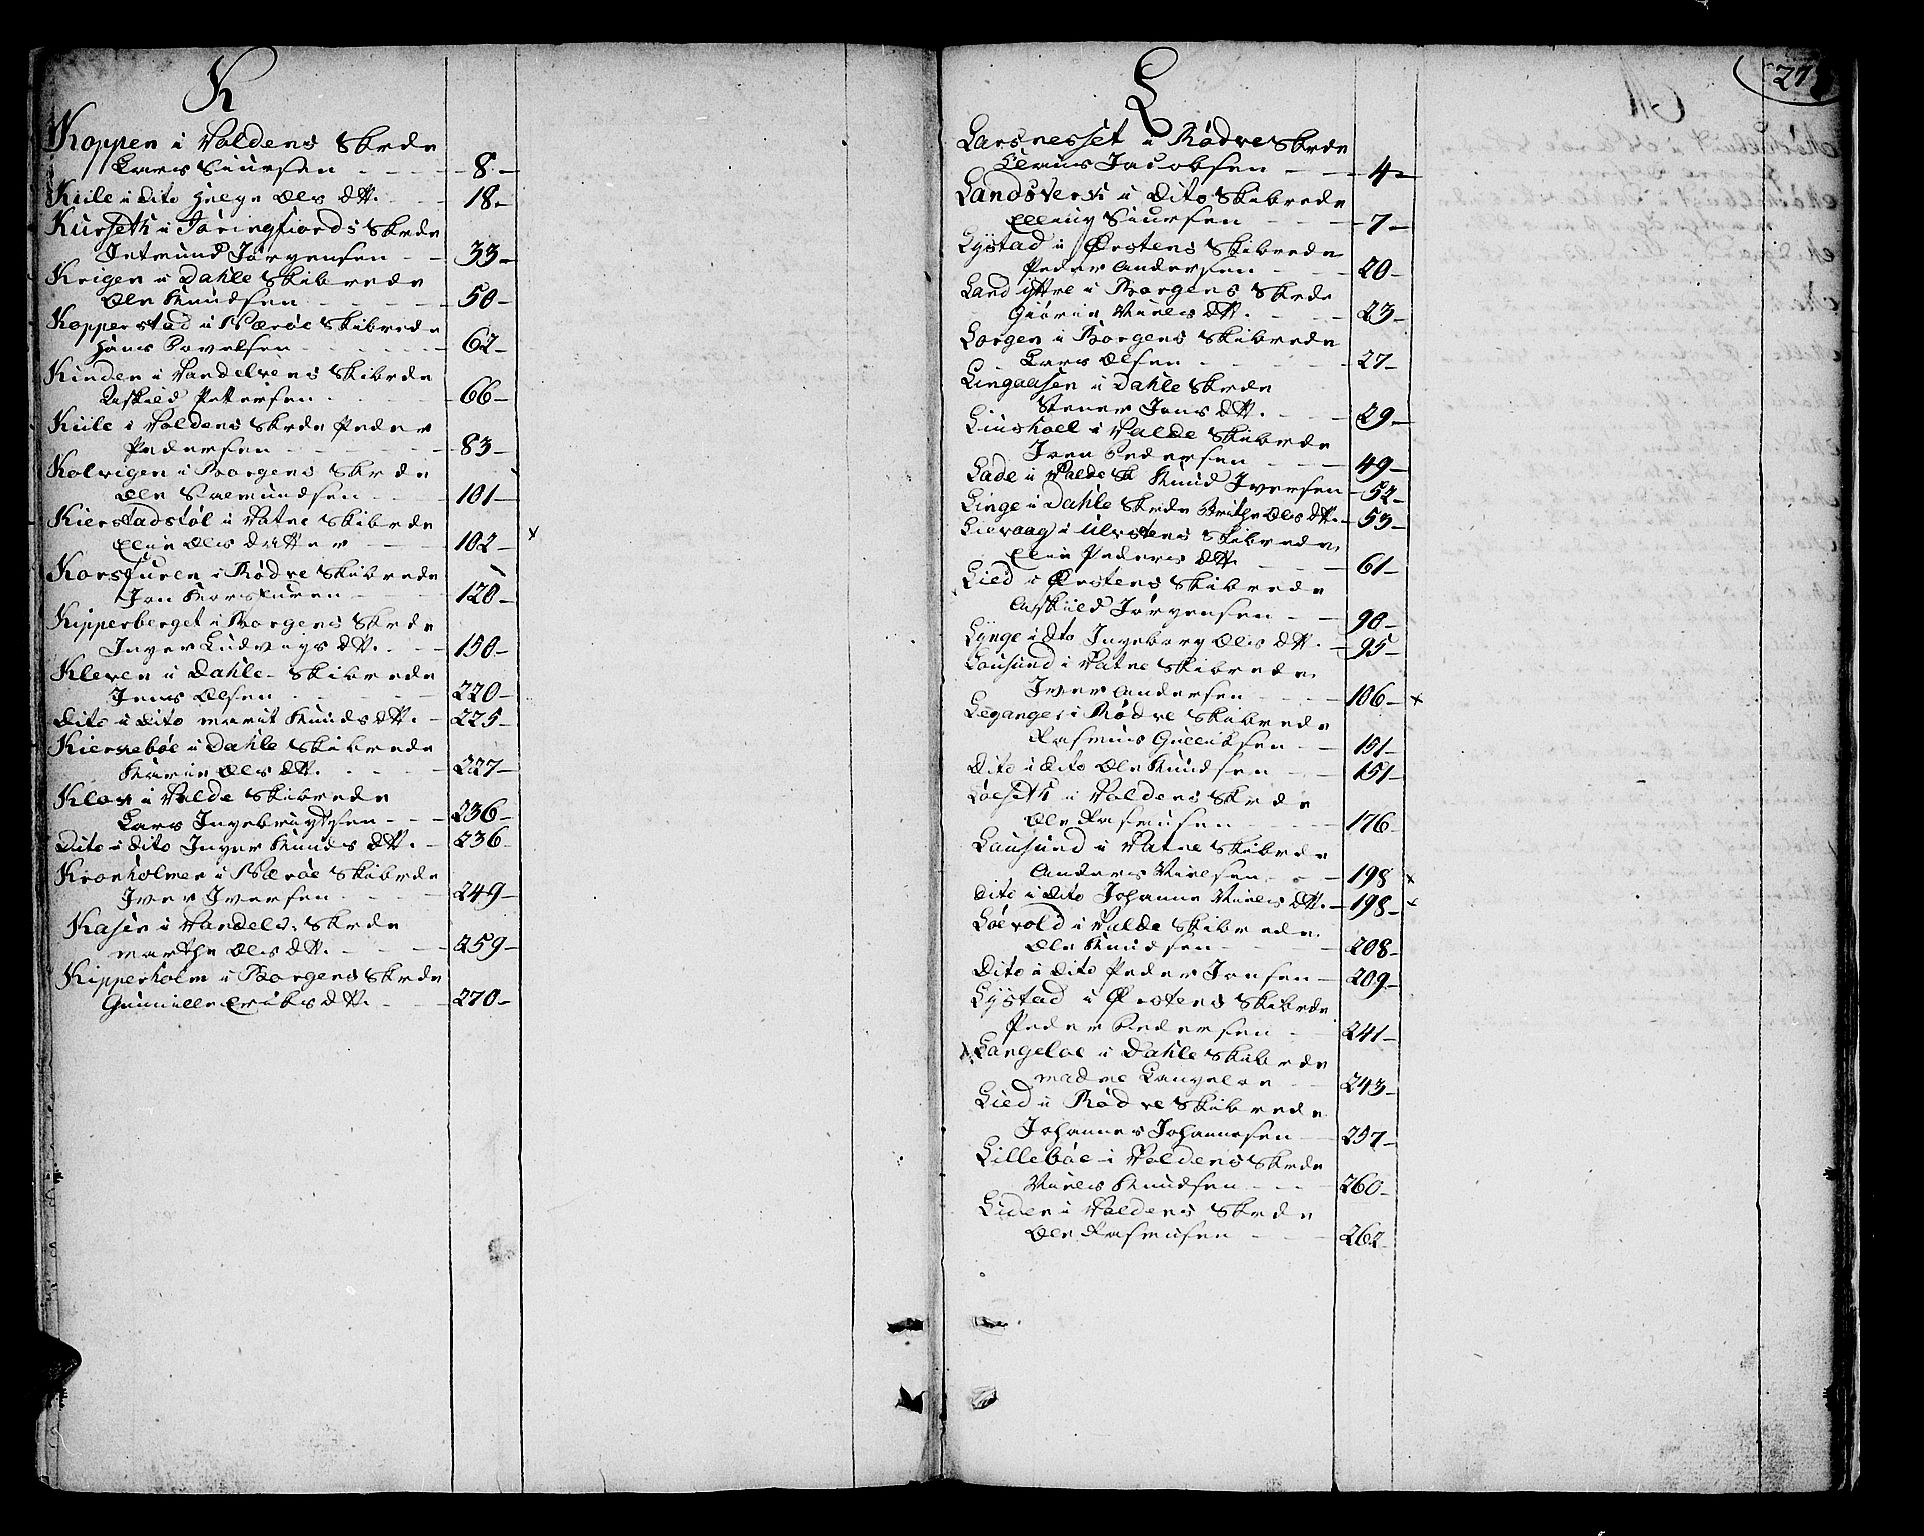 K
Koppen i Voldens Skrde
Lars Siursen - - - 8 -
Kiile i dito Helge Ols dtt. - 18 -
Kurseth i Jøringfiords Skrde
Jetmund Jørgensen - - 33 -
Krigen i Dahle Skibrede
Ole Knudsen - - - 50 -
Kopperstad i Værøe Skibrede
Hans Povelsen - - - 62 -
Kinden i Vandelvens Skibrde
Askild Pettersen - - - 66 -
Kiile i Voldens Skrde Peder
Pedersen - - - 83 -
Kolvigen i Borgens Skrde
Ole Salmundsen - - 101 -
Kierstadstøl i Vatne Skibrde
Elie Ols datter - - 102 - x
Korsfuren i Rødve Skibrede
Jon Korsfuren - - 120 -
Kipperberget i Borgens Skrde
Inger Ludvigs dtt. - - 150 -
Kleven i Dahle Skibrede
Jens Olsen - - 220 -
Dito i dito Marit Knuds dtt. - 225 -
Kiersebøe i Dahle Skibrede
Marie Ols dtt. - - 227 -
Klov i Volde Skibrede
Lars Ingebrigtsen - - 236 -
Dito i dito Inger Knuds dtt. - 236 -
Kronholmen i Værøe Skibrde
Iver Iversen - - 249 -
Kasen i Vandelv. Skrde
Marthe Ols dtt. - - 259 -
Kipperholm i Borgens Skrde
Gunnille Eriks dtt. - 270 -
L
27
Larsnesset i Rødve Skrde
Claus Jacobsen - - 4 -
Landsverk i dito Skibrede
Elling Siursen - - 7 -
Lystad i Ørstens Skibrede
Peder Andersen - - 20 -
Land yttre i Borgens Skrde
Giørin Niels dtt. - - 23 -
Lorgen i Borgens Skibrede
Lars Olsen - - 27 -
Lingaasen i Dahle Skrde
Stener Jons dtt. - - 29 -
Liushoel i Valde Skibrde
Iven Pedersen - - 49 -
Lade i Valde Sk Knud Iversen - 52 -
Linge i Dahle Skrde Brithe Ols dtt. - 53 -
Liavaag i Ulvstens Skibrede
Elie Peders dtt. - - 61 -
Lied i Ørstens Skibrede
Askild Jørgensen - - 90 -
Lynge i dto Ingeborg Ols dtt. - 95 -
Lausund i Vatne Skibrede
Iver Andersen - - 106 - x
Leganger i Rødve Skibrede
Rasmus Gulliksen - - 151 -
Dito i dito Ole Knudsen - - 151 -
Løeseth i Voldens Skrde
Ole Rasmusen - - 176 -
Lausund i Vatne Skibrde
Anders Nielsen - - 198 x
Dito i dito Johanne Niels dtt. - 198 - x
Løevold i Valde Skibrede
Ole Knudsen - - 208 -
Dito i dito Peder Jonsen - 209 -
Lystad i Ørstens Skibrde
Peder Pedersen - - 241 -
Langeloe i Dahle Skibrede
Madne Langeloe - - 243 -
Lied i Rødve Skibrede
Johannes Johannesen - 257 -
Lillebøe i Voldens Skrde
Niels Knudsen - - 260 -
Liden i Voldens Skrde
Ole Rasmusen - - 262 -